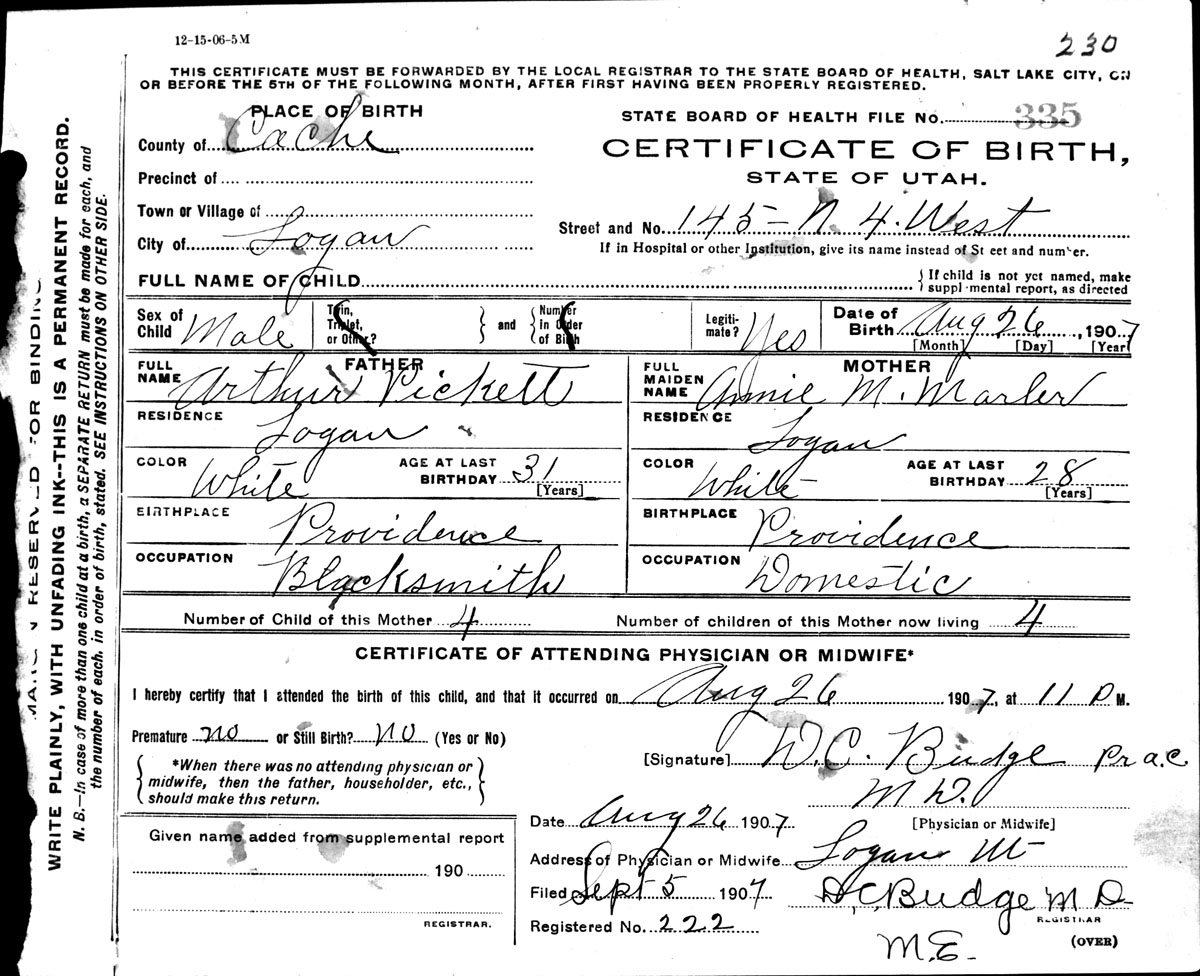 12-15-06-5M
230
THIS CERTIFICATE MUST BE FORWARDED BY THE LOCAL REGISTRAR TO THE STATE BOARD OF HEALTH, SALT LAKE CITY, ON
OR BEFORE THE 5TH OF THE FOLLOWING MONTH, AFTER FIRST HAVING BEEN PROPERLY REGISTERED.
PLACE OF BIRTH
STATE BOARD OF HEALTH FILE No. 335
County of Cache
CERTIFICATE OF BIRTH,
STATE OF UTAH.
Precinct of
Town or Village of
Street and No. 145-N. 4. West
City of Logan
If in Hospital or other Institution, give its name instead of St eet and number.
FULL NAME OF CHILD
{ If child is not yet named, make
supplemental report, as directed
Sex of Child Male
Twin, Triplet, or Other? } and { Number in Order of Birth
Legiti-mate? Yes
Date of Birth Aug 26, 1907
[Month] [Day] [Year]
FATHER
MOTHER
FULL NAME Arthur Pickett
FULL MAIDEN NAME Annie M. Marler
RESIDENCE Logan
RESIDENCE Logan
COLOR White AGE AT LAST BIRTHDAY 31 [Years]
COLOR White AGE AT LAST BIRTHDAY 28 [Years]
BIRTHPLACE Providence
BIRTHPLACE Providence
OCCUPATION Blacksmith
OCCUPATION Domestic
Number of Child of this Mother 4 Number of children of this Mother now living 4
CERTIFICATE OF ATTENDING PHYSICIAN OR MIDWIFE*
I hereby certify that I attended the birth of this child, and that it occurred on Aug 26 1907, at 11 P M.
Premature no or Still Birth? no (Yes or No)
[Signature] D.C. Budge
M D.
[Physician or Midwife]
{ *When there was no attending physician or
midwife, then the father, householder, etc.,
should make this return. }
Date Aug 26 1907
Given name added from supplemental report
190
REGISTRAR.
Address of Physician or Midwife Logan
Filed Sept 5 1907 D.C. Budge M D
REGISTRAR
Registered No. 222
M.E.
(OVER)
MARGIN RESERVED FOR BINDING
WRITE PLAINLY, WITH UNFADING INK--THIS IS A PERMANENT RECORD.
N. B.—In case of more than one child at a birth, a SEPARATE RETURN must be made for each, and
the number of each, in order of birth, stated. SEE INSTRUCTIONS ON OTHER SIDE.